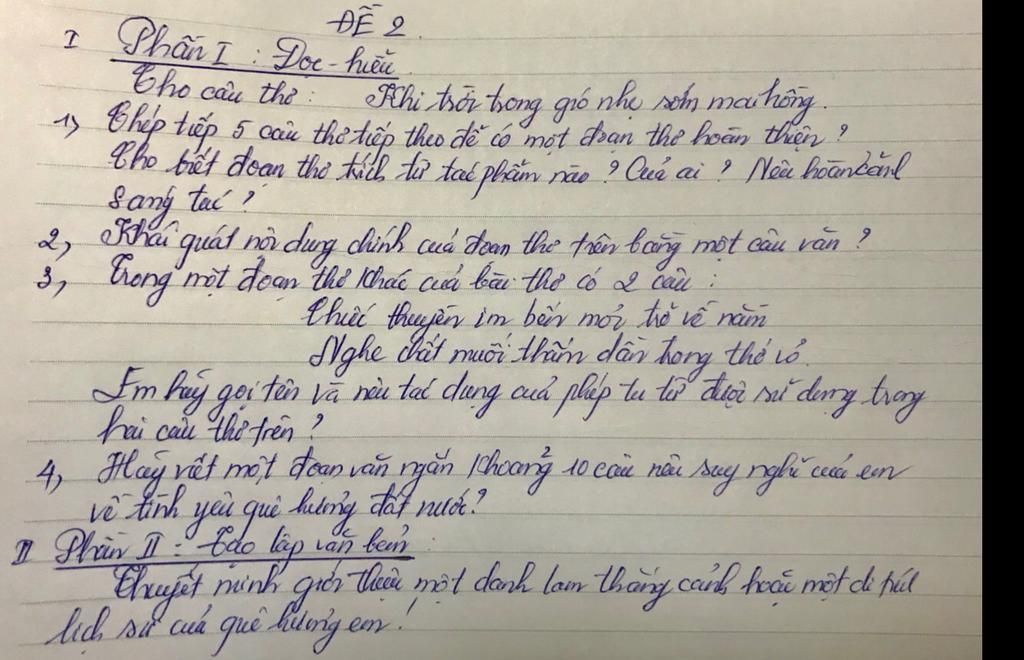 ĐỀ 2.
I Phần I : Đọc - hiểu
Cho câu thơ: Khi trời trong gió nhẹ sớm mai hồng.
1, Chép tiếp 5 câu thơ tiếp theo để có một đoạn thơ hoàn thiện ?
Cho biết đoạn thơ trích từ tác phẩm nào ? Của ai ? Nêu hoàn cảnh
sáng tác ?
2, Khái quát nội dung chính của đoạn thơ trên bằng một câu văn ?
3, Trong một đoạn thơ khác của bài thơ có 2 câu :
Chiếc thuyền im bến mỏi trở về nằm
Nghe chất muối thấm dần trong thớ vỏ.
Em hãy gọi tên và nêu tác dụng của phép tu từ được sử dụng trong
hai câu thơ trên ?
4, Hãy viết một đoạn văn ngắn khoảng 10 câu nêu suy nghĩ của em
về tình yêu quê hương đất nước ?
II Phần II : Tạo lập văn bản :
Thuyết minh giới thiệu một danh lam thắng cảnh hoặc một di tích
lịch sử của quê hương em !